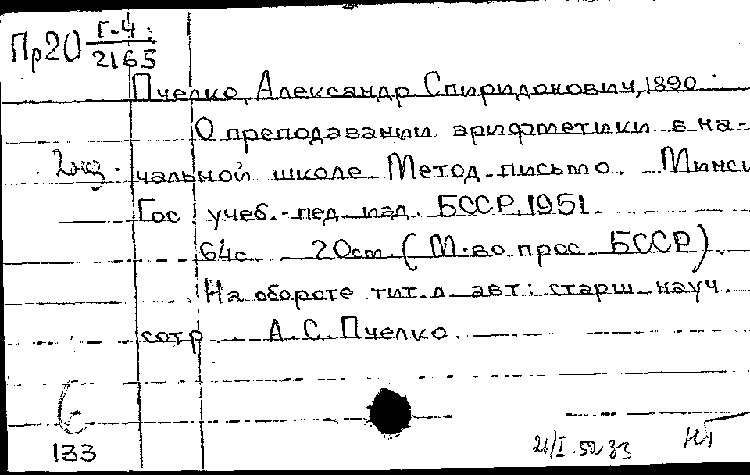 Пр20 Г-4
2165
Пчелко, Александр Спиридонович, 1890
О преподавании арифметики в на-
2 экз. чальной школе Метод. письмо. Минск
Гос учеб.-пед изд. БССР, 1951
64с. 20см (М-во прос БССР)
На обороте тит. л авт: старш науч.
сотр А. С. Пчелко.
133
21/I.52